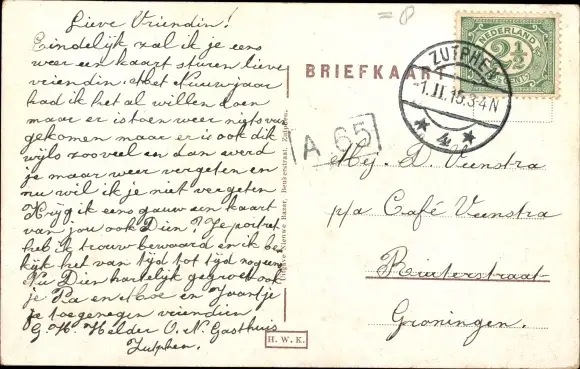 Lieve Vriendin!
Eindelijk zal ik je eens
weer een kaart sturen lieve
vriendin. Met Nieuwjaar
had ik het al willen doen
maar er is toen weer niets van
gekomen maar er is ook dik
wijls zooveel en dan werd
je maar weer vergeten en
nu wil ik je niet vergeten
Krijg ik eens gauw een kaart
van jou ook Dien? Je portret
heb ik trouw bewaard en ik be
kijk het van tijd tot tijd nog eens
Nu Dien hartelijk gegroet ook
je Pa en Moe en Jaantje
je toegenegen vriendin
G. H. Helder O. N. Gasthuis
Zutphen.
Uitgave Nieuwe Bazar, Beukerstraat, Zutphen.
H. W. K.
BRIEFKAART
A 65
NEDERLAND
2½
CENT
ZUTPHEN
1.II.15.3-4N
4
Mej. D. Veenstra
p/a Café Veenstra
Ruiterstraat
Groningen.